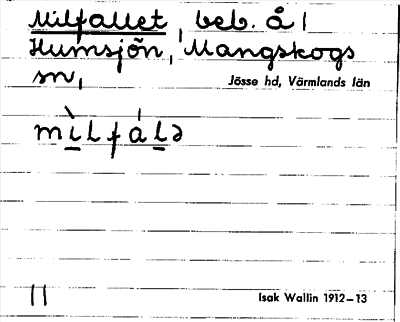 Milfallet, beb. å
Humsjön, Mangskogs
sn,
Jösse hd, Värmlands län
mìlfálə
11
Isak Wallin 1912–13